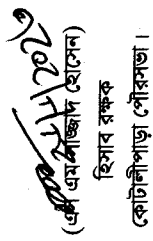 ২৮/৭/২০২৩
(এস এম সাজ্জাদ হোসেন)
হিসাব রক্ষক
কোটালীপাড়া পৌরসভা।